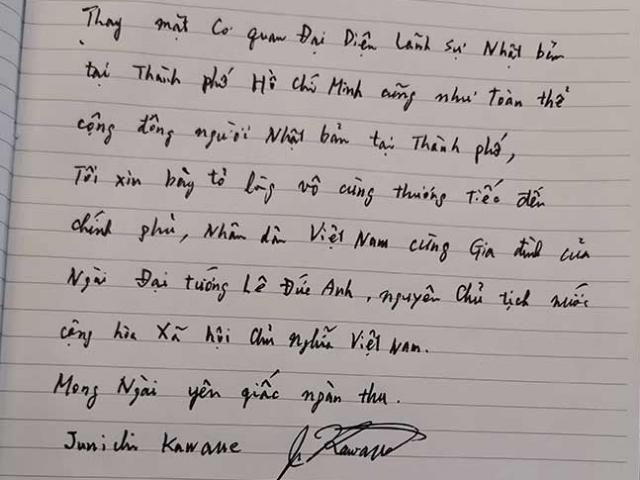 Thay mặt Cơ quan Đại Diện Lãnh sự Nhật bản
tại Thành phố Hồ Chí Minh cũng như Toàn thể
cộng đồng người Nhật bản tại Thành phố,
Tôi xin bày tỏ lòng vô cùng thương Tiếc đến
chính phủ, Nhân dân Việt Nam cùng Gia đình của
Ngài Đại tướng Lê Đức Anh, nguyên Chủ tịch nước
cộng hòa Xã hội Chủ nghĩa Việt Nam.
Mong Ngài yên giấc ngàn thu.
Junichi Kawaue Kawaue